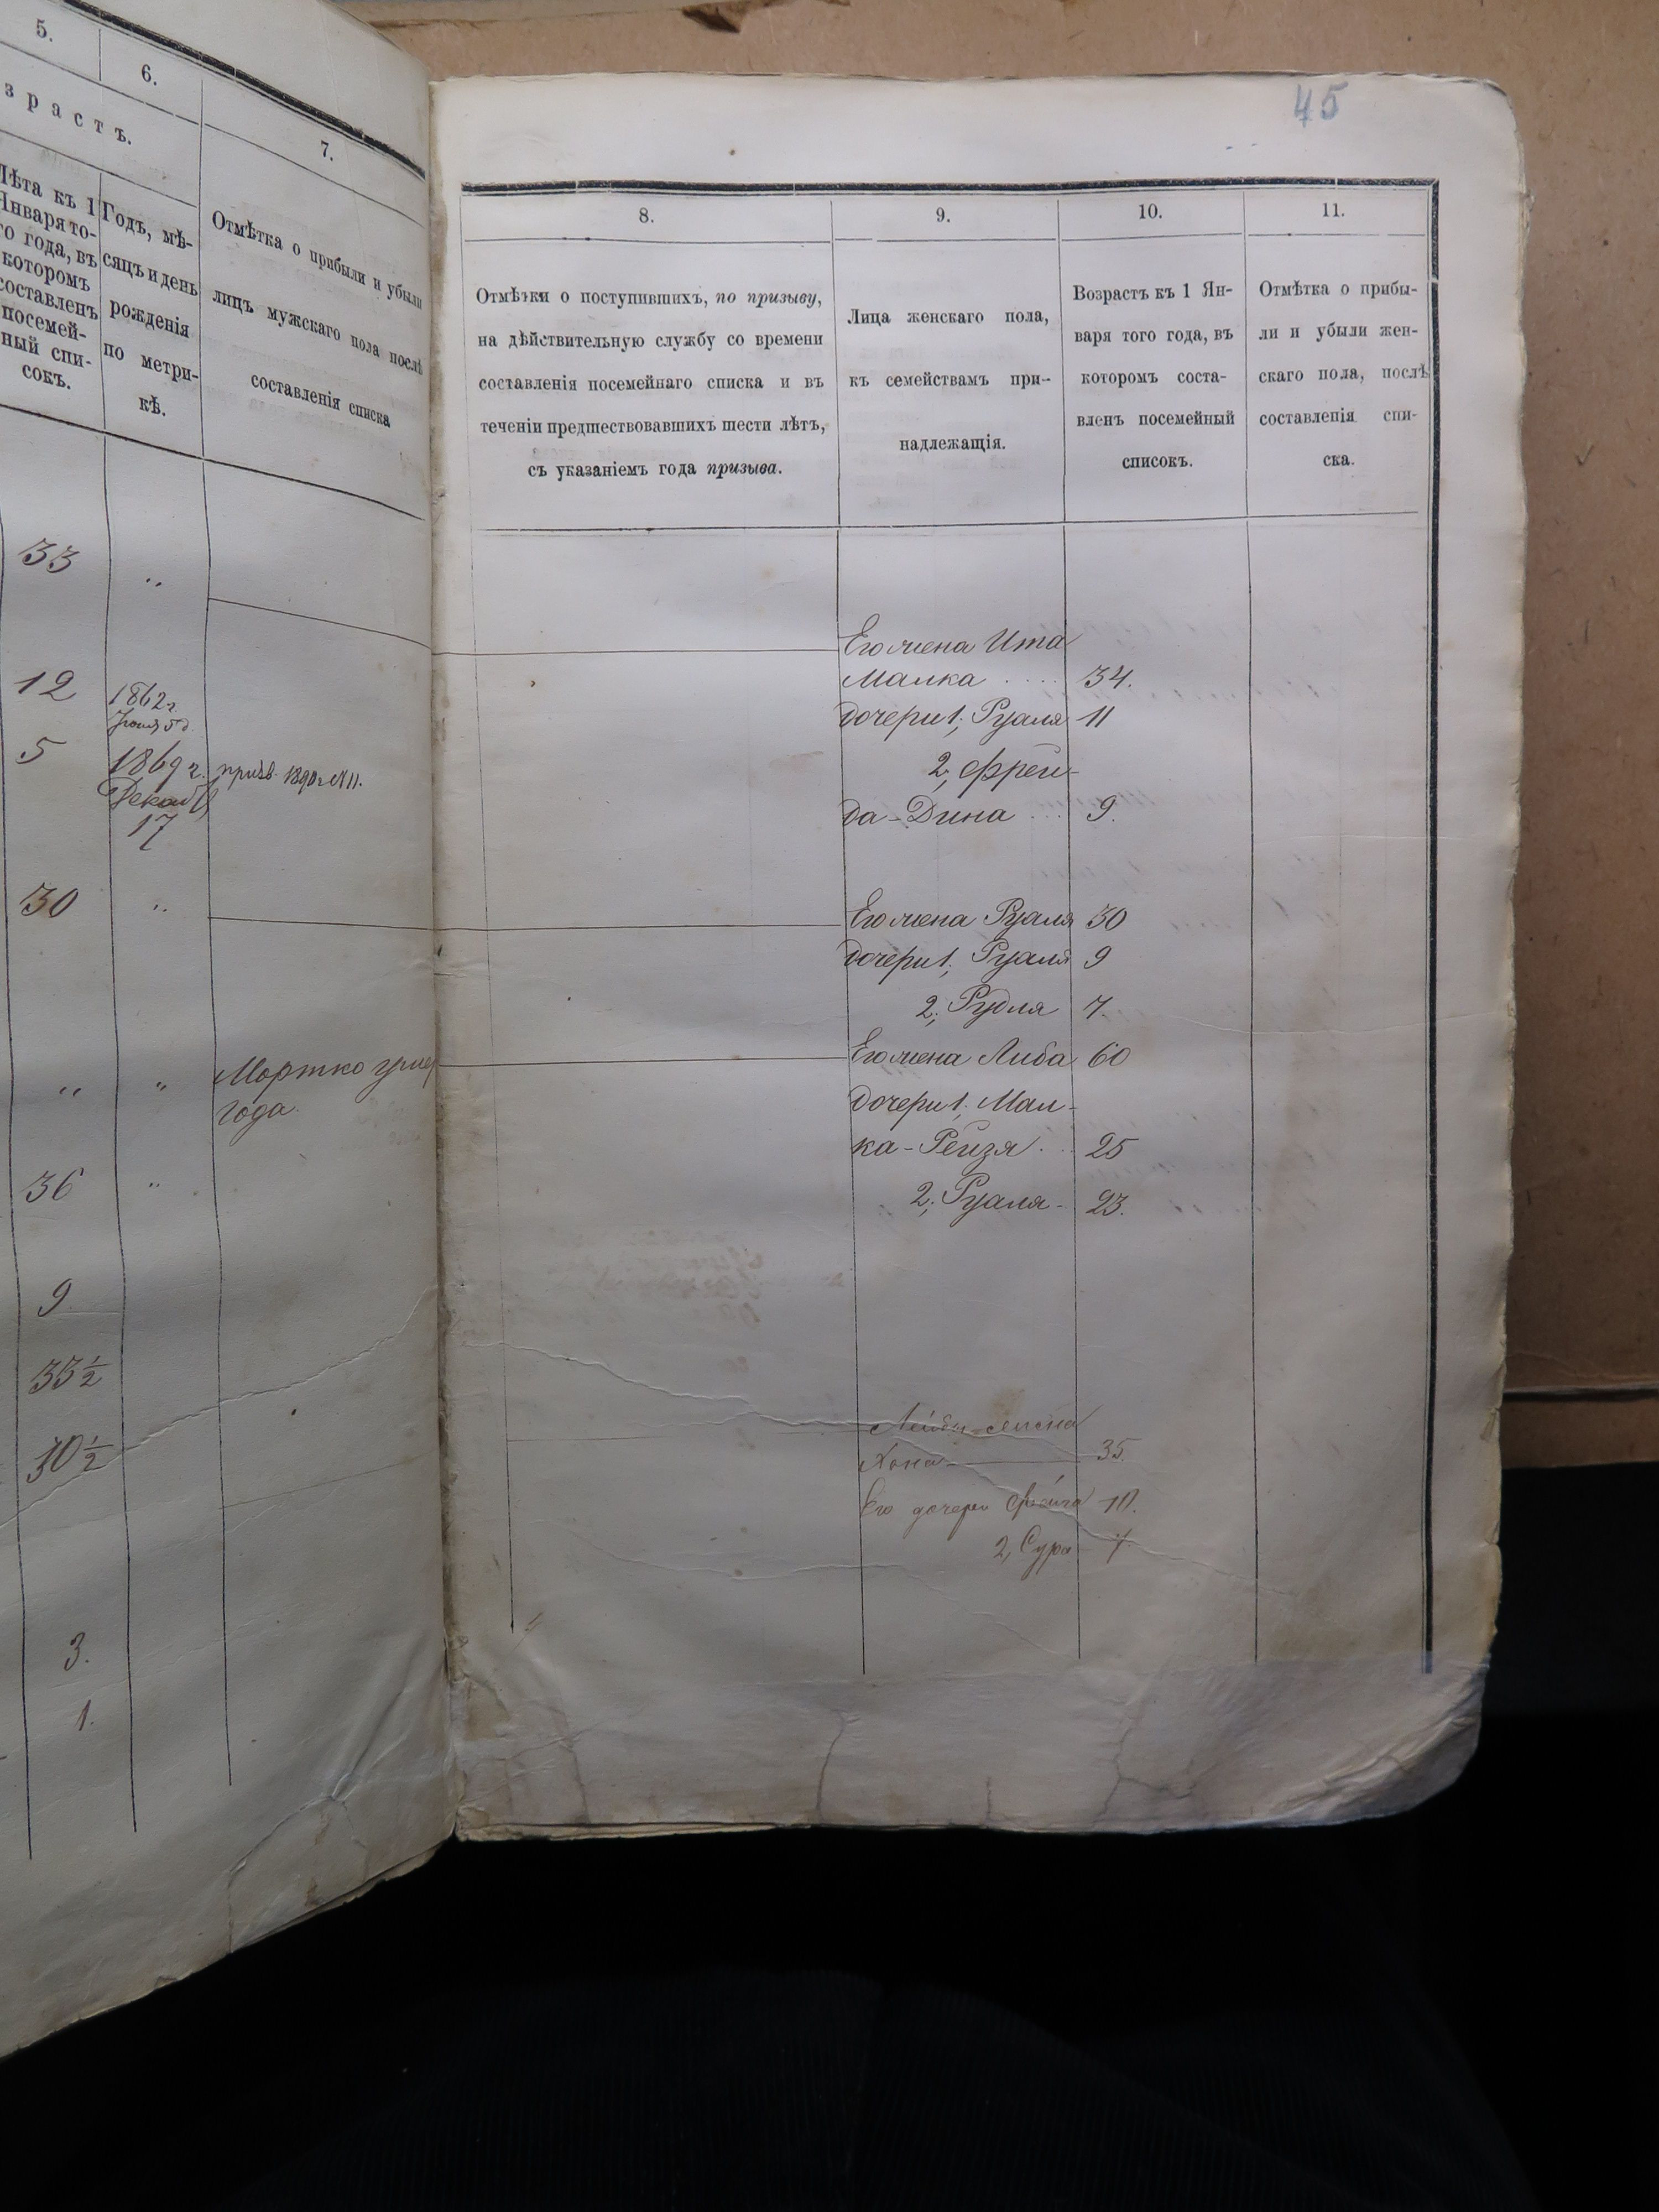 5.
6.
зрастъ.
7.
Лѣта къ 1
Января то-
го года, въ
которомъ
составленъ
посемей-
ный спи-
сокъ.
Годъ, мѣ-
сяцъ и день
рожденія
по метри-
кѣ.
Отмѣтка о прибыли и убыли
лицъ мужскаго пола послѣ
составленія списка
33
„
12
1862 г.
5
1869 г.
Декаб
17
призв. 1890 г. №11.
30
„
„
„
Мортко умер
года.
36
„
9
33½
30½
3.
1.
45
8.
9.
10.
11.
Отмѣтки о поступившихъ, по призыву,
на дѣйствительную службу со времени
составленія посемейнаго списка и въ
теченіи предшествовавшихъ шести лѣтъ,
съ указаніемъ года призыва.
Лица женскаго пола,
къ семействамъ при-
надлежащія.
Возрастъ къ 1 Ян-
варя того года, въ
которомъ соста-
вленъ посемейный
списокъ.
Отмѣтка о прибы-
ли и убыли жен-
скаго пола, послѣ
составленія спи-
ска.
Его жена Ита
Малка 34.
дочери 1; Руаля 11
2; Фрей-
да-Дина 9.
Его жена Руаля 30
дочери 1; Руаля 9
2; Рудля 7.
Его жена Либа 60
дочери 1; Мал-
ка-Рейзя 25
2; Руаля 23.
жена
Хана 35.
Его дочери Фейга 10.
2, Сура 7